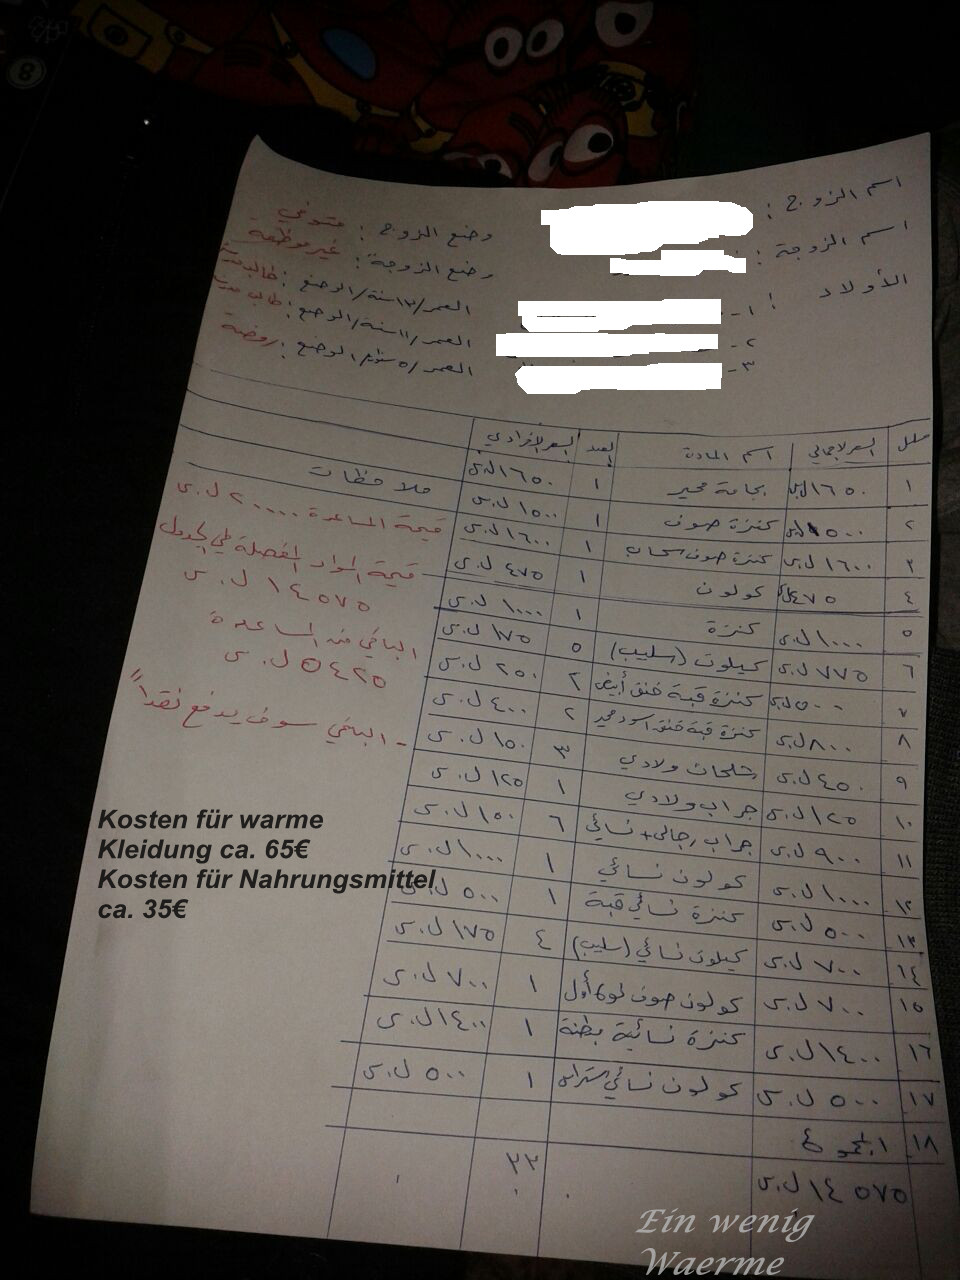 اسم الزوج :
وضع الزوج : متوفي
اسم الزوجة :
وضع الزوجة : غير موظفة
الأولاد :
١-
العمر/١٣ سنة/الوضع : طالب مدرسة
٢-
العمر/١١ سنة/الوضع : طالب مدرسة
٣-
العمر/٥ سنوات/الوضع : روضة
السعر الإجمالي اسم المادة العدد السعر الإفرادي
ملاحظات
١ ١٦٥٠ ل.س بجامة مخير ١ ١٦٥٠ ل.س
٢ ١٥٠٠ ل.س كنزة صوف ١ ١٥٠٠ ل.س
٣ ١٦٠٠ ل.س كنزة صوف سحاب ١ ١٦٠٠ ل.س
٤ ٤٧٥ ل.س كولون ١ ٤٧٥ ل.س
٥ ١٠٠٠ ل.س كنزة ١ ١٠٠٠ ل.س
٦ ٧٧٥ ل.س كيلوت (سليب) ٥ ١٧٥ ل.س
٧ ٥٠٠ ل.س كنزة قبة خنق أبيض ٢ ٢٥٠ ل.س
٨ ٨٠٠ ل.س كنزة قبة خنق اسود ٢ ٤٠٠ ل.س
٩ ٤٥٠ ل.س شلحات ولادي ٣ ١٥٠ ل.س
١٠ ١٢٥ ل.س جراب ولادي ١ ١٢٥ ل.س
١١ ٩٠٠ ل.س جراب رجالي + نسائي ٦ ١٥٠ ل.س
١٢ ١٠٠٠ ل.س كولون نسائي ١ ١٠٠٠ ل.س
١٣ ٥٠٠ ل.س كنزة نسائي قبة ١ ٥٠٠ ل.س
١٤ ٧٠٠ ل.س كيلوت نسائي (سليب) ٤ ١٧٥ ل.س
١٥ ٧٠٠ ل.س كولون صوف ١ ٧٠٠ ل.س
١٦ ١٤٠٠ ل.س كنزة نسائية بطنة ١ ١٤٠٠ ل.س
١٧ ٥٠٠ ل.س كولون نسائي ١ ٥٠٠ ل.س
١٨ المجموع
١٤٥٧٥ ل.س ٣٣
قيمة المساعدة ٢٠٠٠٠ ل.س
قيمة المواد المفصلة في الجدول
١٤٥٧٥ ل.س
الباقي من المساعدة
٥٤٢٥ ل.س
- الباقي سوف يدفع نقداً
Kosten für warme
Kleidung ca. 65€
Kosten für Nahrungsmittel
ca. 35€
Ein wenig
Waerme